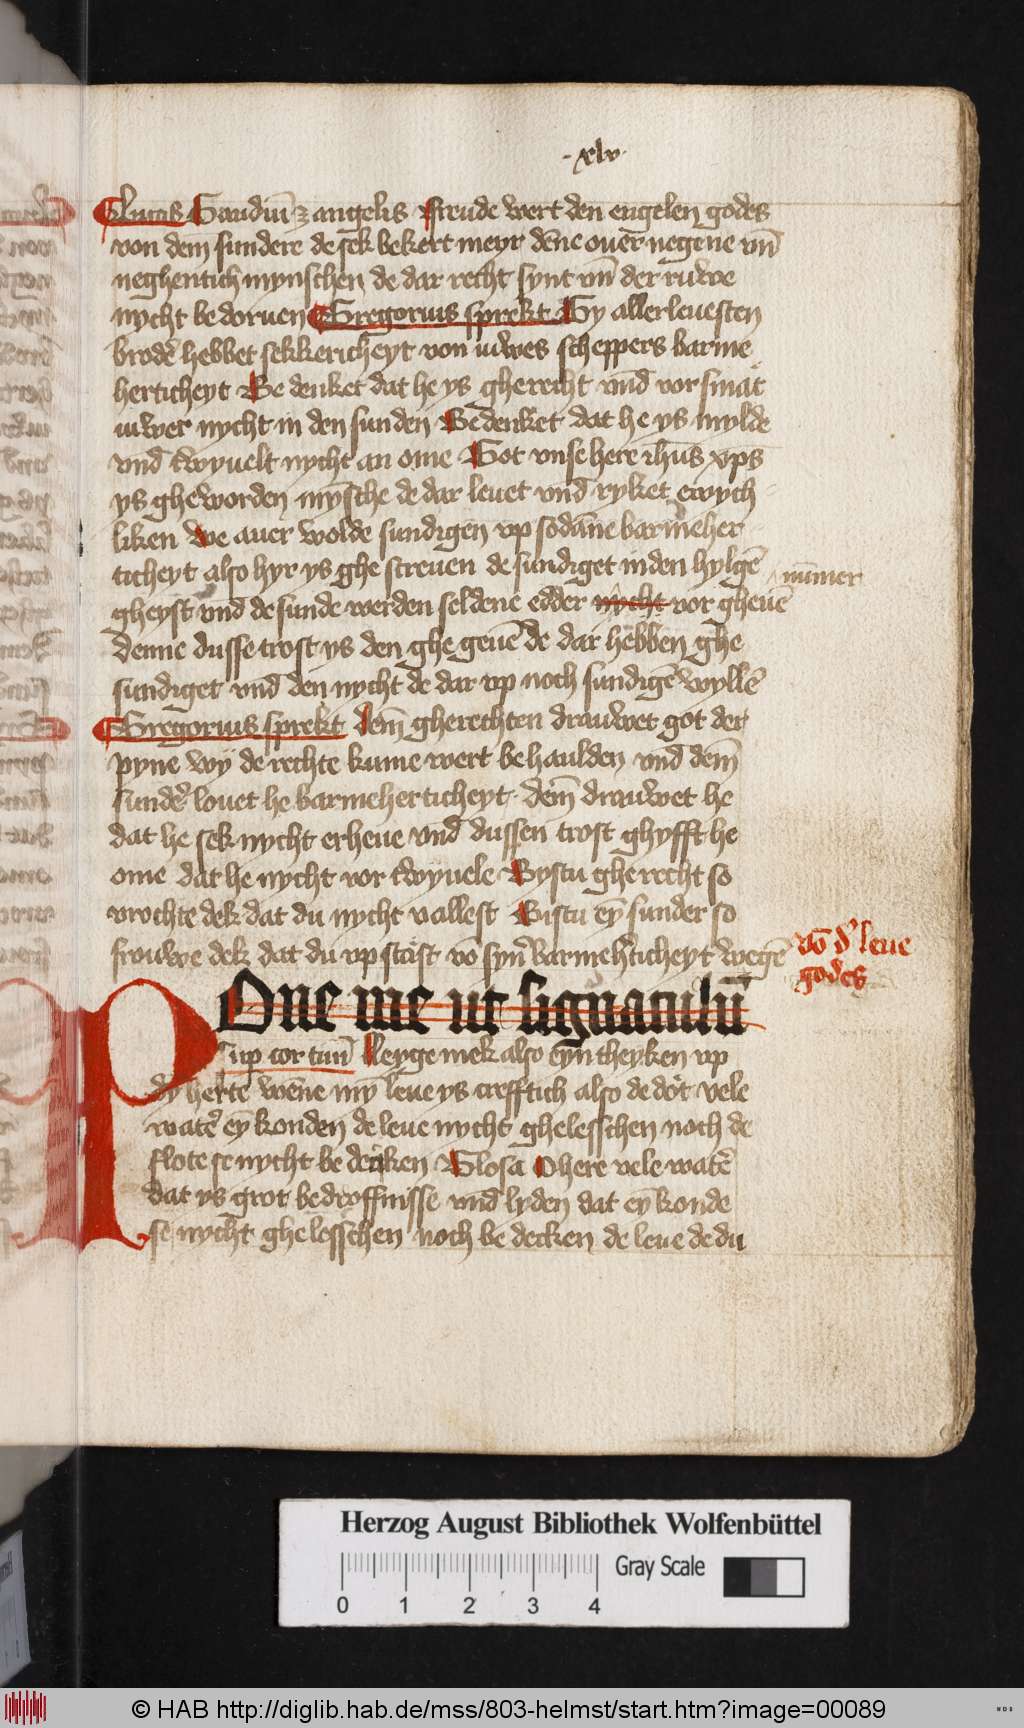 ·xlv·
Lucas Gaudiū ꝫ angelis Freude wert den engelen godes
von dem sundere de sek bekert meyr dēne ouer negene vn̄
neghentich mynschen de dar recht synt vn̄ der ruwe
nycht bedoruen Gregorius sprekt Gy allerleuesten
brodē hebbet sekkericheyt von iuwes scheppers barme
herticheyt Be denket dat he ys gherecht vnd̄ vorsmat
iuwer nycht in den sunden Bedenket dat he ys mylde
vnd̄ twyuelt nycht an ome Got vnse here ihūs xp̄s
ys gheworden mȳsche de dar leuet vnd̄ ryket ewych
liken We auer wolde sundigen vp sodāne barmeher
ticheyt also hyr ys ghescreuen de sundiget inden hylgē
nūmer
gheyst vnd̄ de sunde werden seldene edder nycht vor gheuē
Denne dusse trost ys den ghe geuē de dar hebben ghe
sundiget vnd den nycht de dar vp noch sundigē wyllē
Gregorius sprekt Dem̄ gherechten drauwet got der
pyne wy de rechte kume wert behaulden vnd dem̄
sundē louet he barmeherticheyt· dem̄ drauwet he
dat he sek nycht erheue vnd̄ dussen trost ghyfft he
ome dat he nycht vor twyuele Bystu gherecht so
vrochte dek dat du nycht vallest Bistu eȳ sunder so
frouwe dek dat du vp stāst vō syn̄ barmeh̄ticheyt wegē
vō d' leue
godes
POne me ut signaculū
sup cor tuū Leyge mek also eyn theyken vp
dȳ hertē wēne mȳ leue ys crefftich also de dot vele
watē eȳ konden de leue nycht ghelesschen noch de
flote se nycht be decken Glosa O here vele watē
dat ys grot bedroffnisse vnd lyden dat eȳ konde
se nycht ghelesschen noch be decken de leue de du
Herzog August Bibliothek Wolfenbüttel
Gray Scale
0 1 2 3 4
© HAB http://diglib.hab.de/mss/803-helmst/start.htm?image=00089